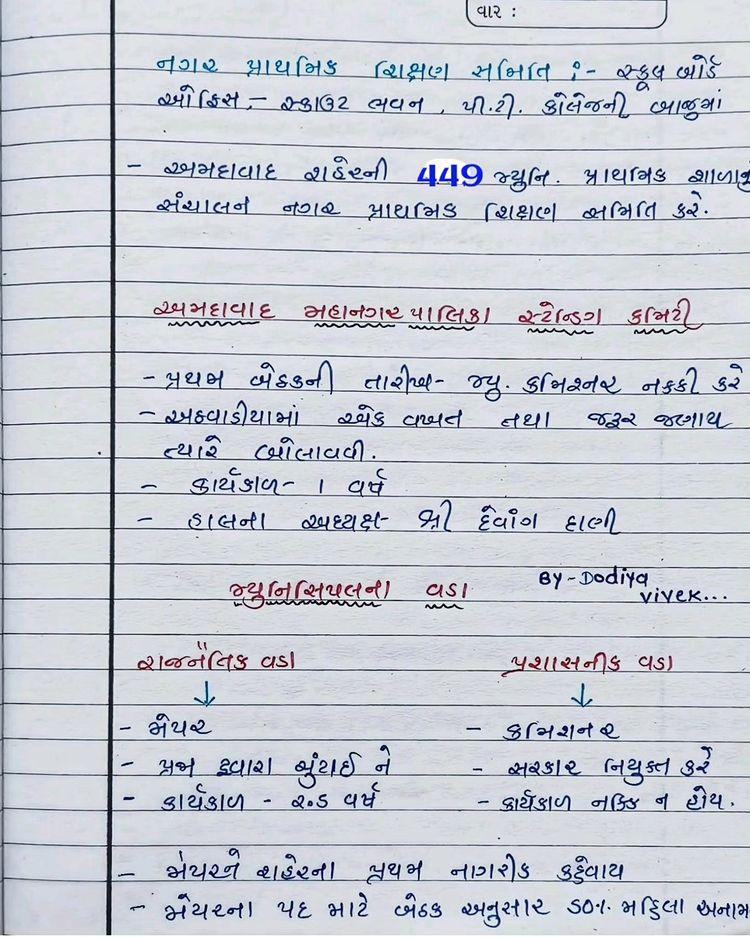 વાર :
નગર પ્રાથમિક શિક્ષણ સમિતિ :- સ્કૂલ બોર્ડ
ઓફિસ - સ્કાઉટ ભવન , પી.ટી. કોલેજની બાજુમાં
- અમદાવાદ શહેરની 449 મ્યુનિ. પ્રાથમિક શાળાનુ
સંચાલન નગર પ્રાથમિક શિક્ષણ સમિતિ કરે.
અમદાવાદ મહાનગરપાલિકા સ્ટેન્ડિગ કમિટી
- પ્રથમ બેઠકની તારીખ - મ્યુ. કમિશ્નર નક્કી કરે
- અઠવાડીયામાં એક વખત તથા જરૂર જણાય
ત્યારે બોલાવવી.
- કાર્યકાળ - 1 વર્ષ
- હાલના અધ્યક્ષ - શ્રી દેવાંગ દાણી
મ્યુનિસિપલના વડા
BY - Dodiya
vivek...
રાજનૈતિક વડા
પ્રશાસનીક વડા
↓ ↓
- મેયર
- કમિશનર
- પ્રજા દ્વારા ચુંટાઈ ને
- સરકાર નિયુક્ત કરે
- કાર્યકાળ - ૨.5 વર્ષ
- કાર્યકાળ નક્કિ ન હોય.
- મેયરને શહેરના પ્રથમ નાગરીક કહેવાય
- મેયરના પદ માટે બેઠક અનુસાર 50% મહિલા અનામ